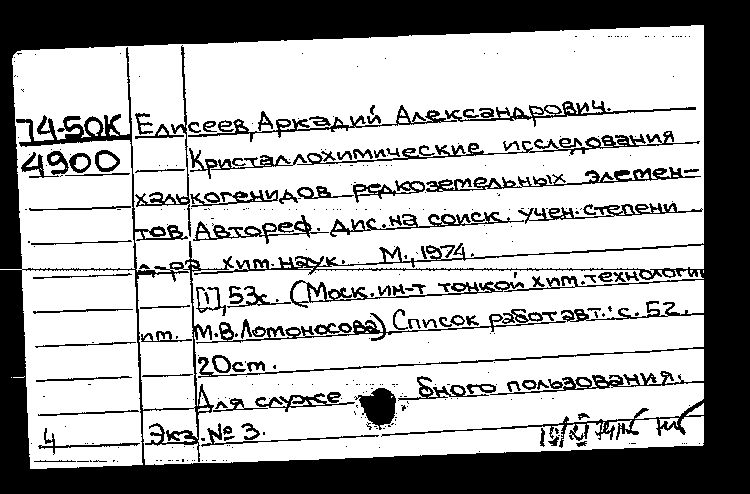 74-50К Елисеев, Аркадий Александрович.
4900 Кристаллохимические исследования
халькогенидов редкоземельных элемен-
тов. Автореф. дис. на соиск. учен. степени
д-ра хим. наук. М., 1974.
[1], 53с. (Моск. ин-т тонкой хим. технологии
им. М.В. Ломоносова). Список работ авт.: с. 52.
20ст.
Для служе бного пользования.
4 Экз. № 3.